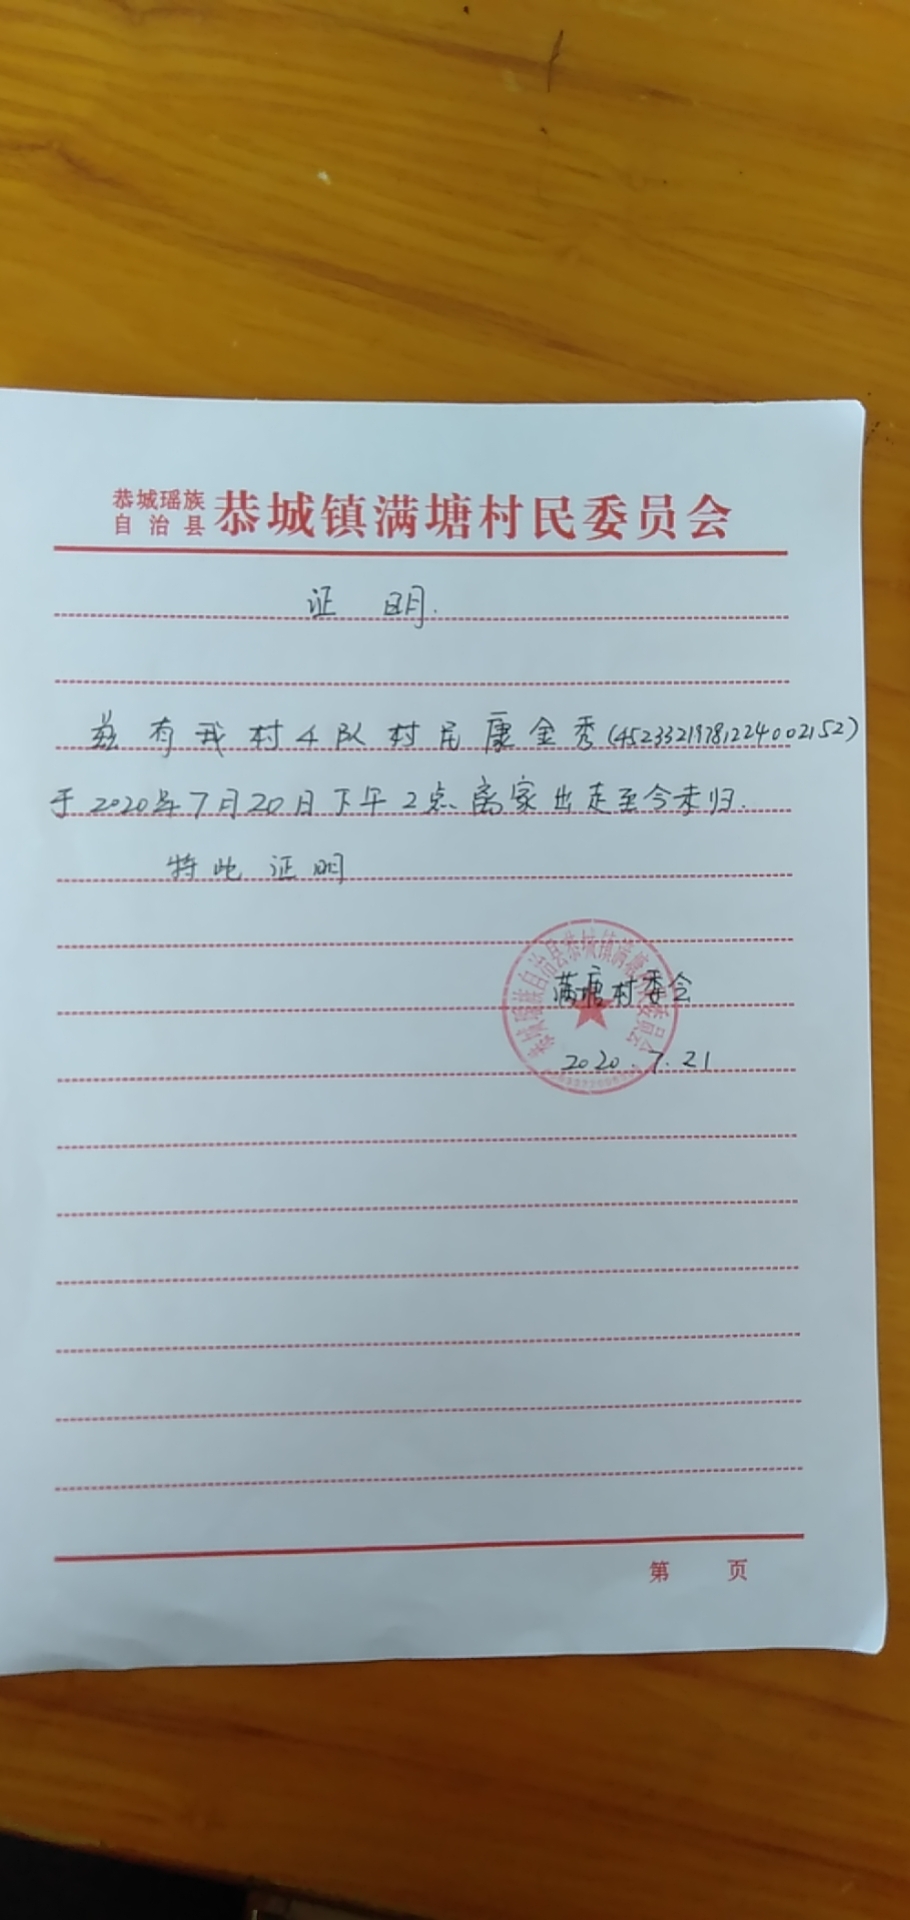 恭城瑶族
自治县 恭城镇满塘村民委员会
证 明.
兹有我村4队村民康金秀(45233219781224002152)
于2020年7月20日下午2点离家出走至今未归.
特此证明
恭城瑶族自治县恭城镇满塘村民委员会
满塘村委会
2020.7.21
第 页